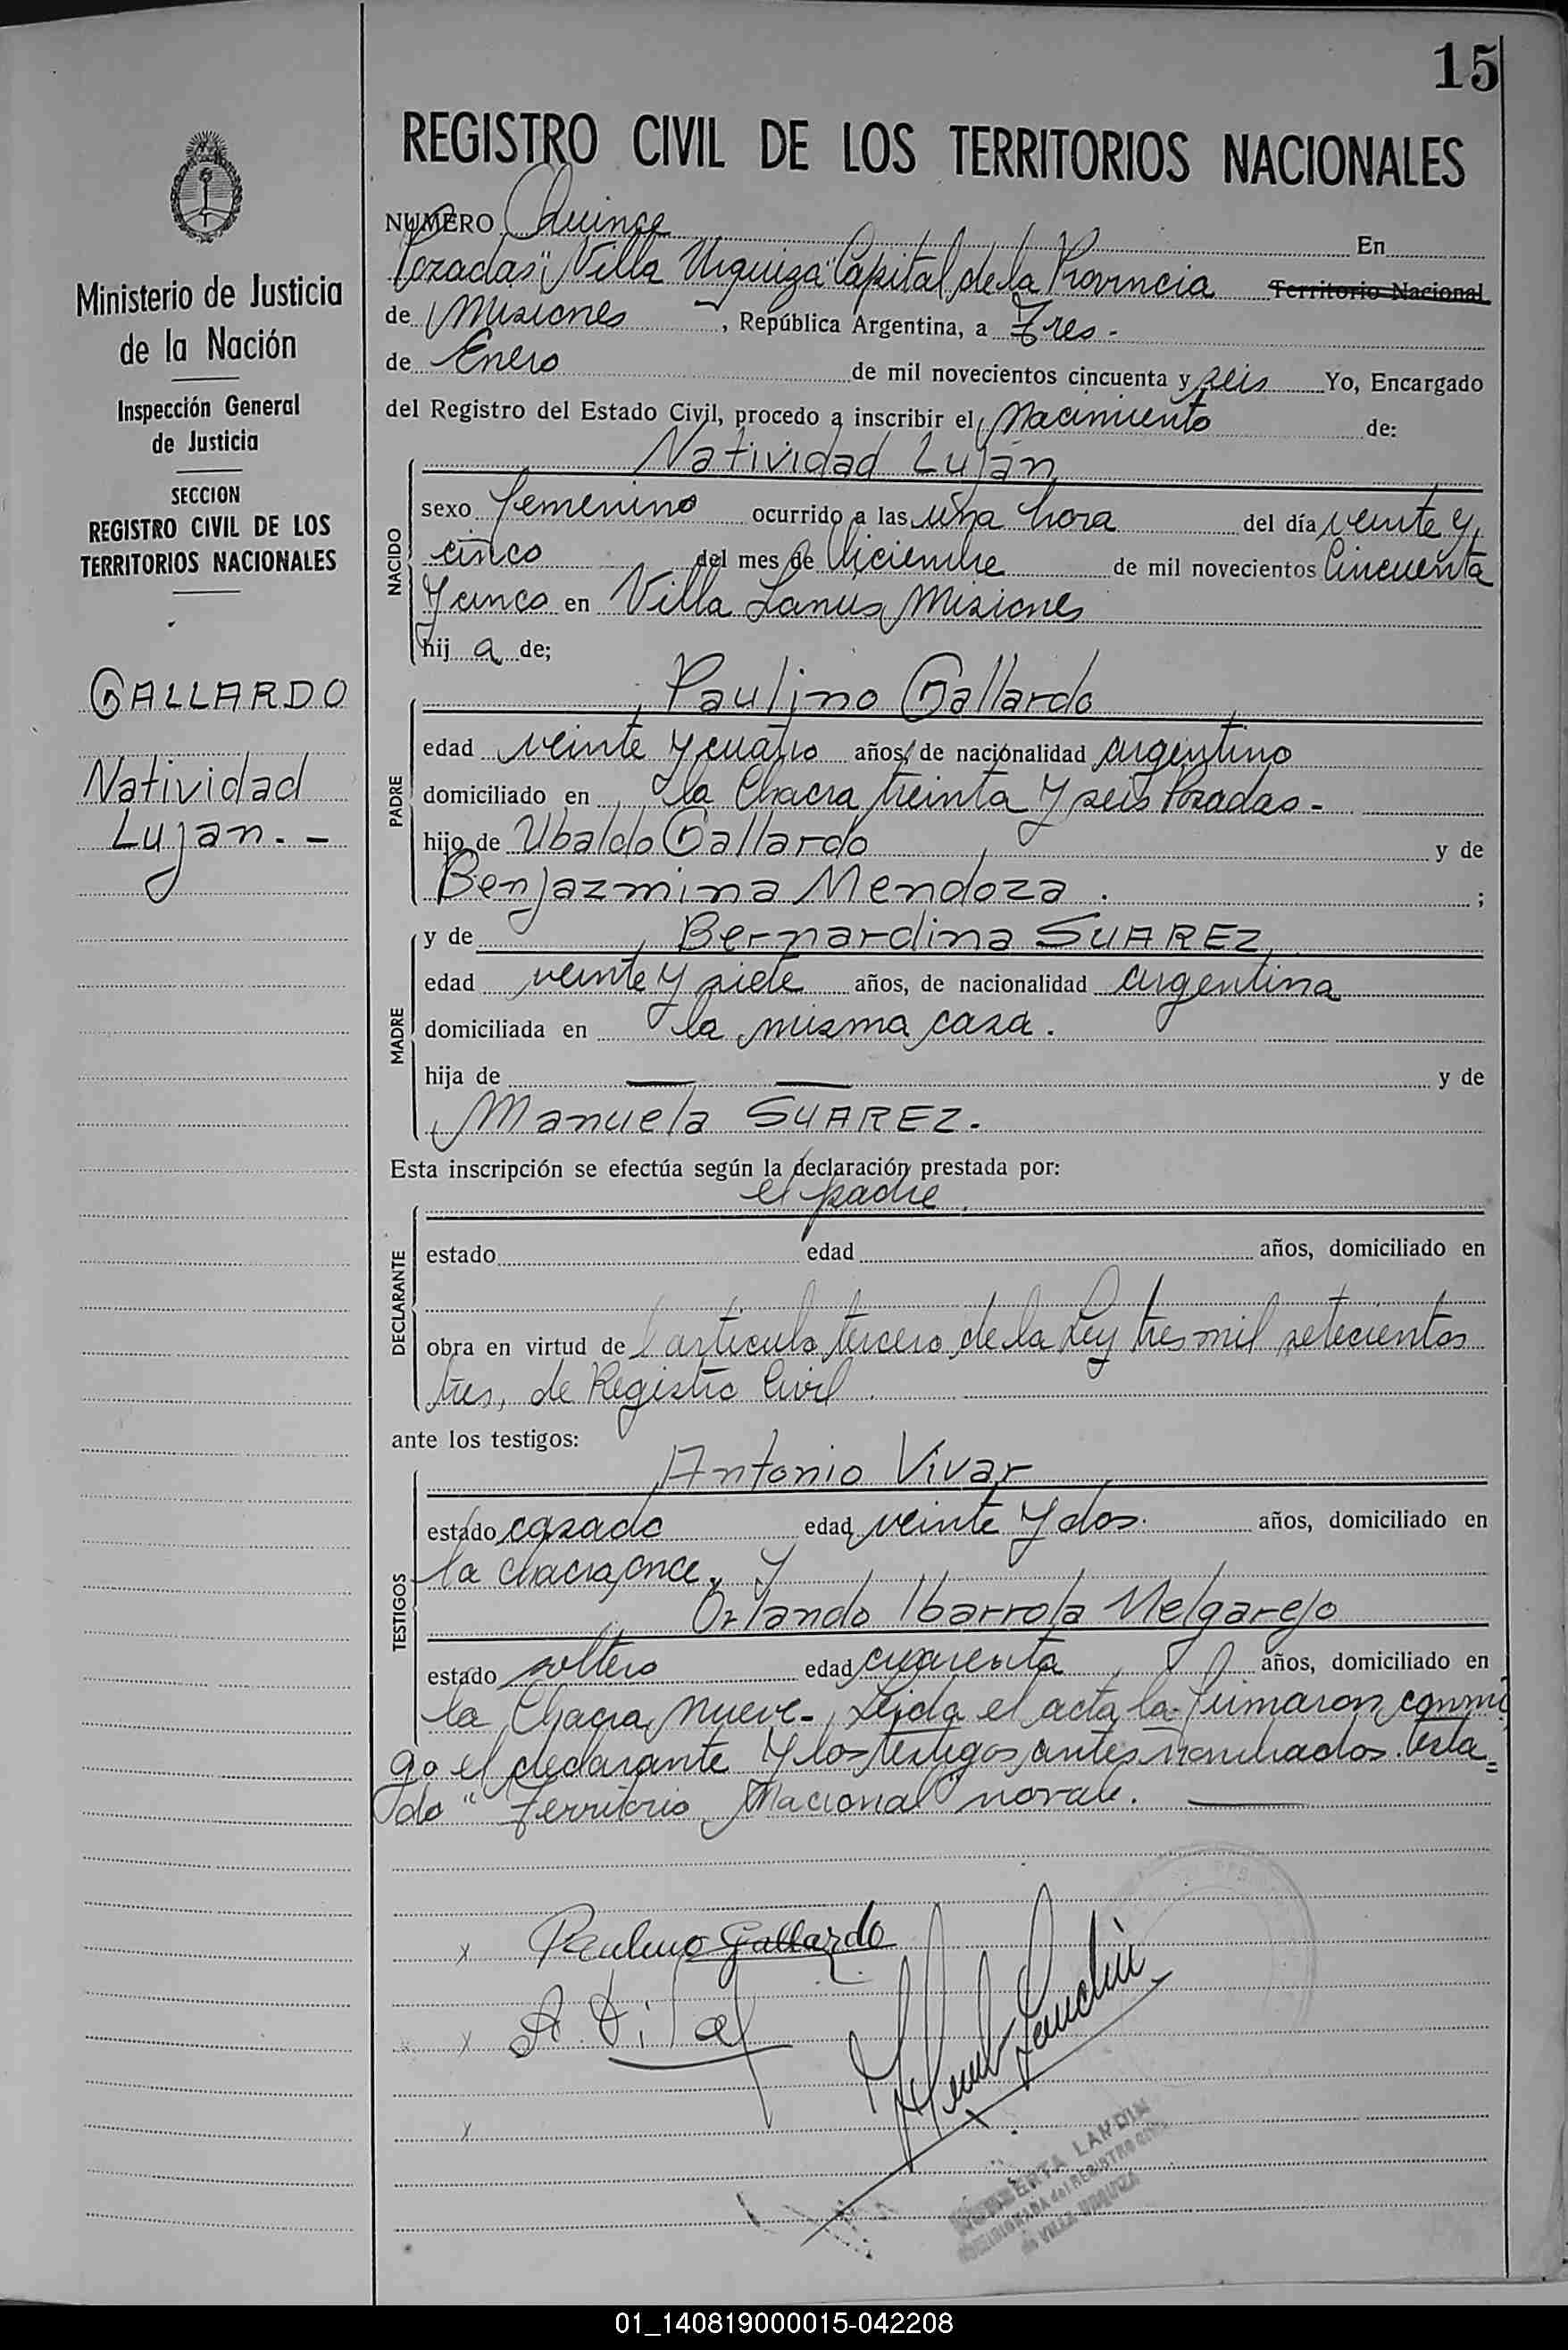 15
REGISTRO CIVIL DE LOS TERRITORIOS NACIONALES
NUMERO Quince En
Pozadas "Villa Urquiza" Capital de la Provincia Territorio Nacional
de Misiones, República Argentina, a Tres -
de Enero de mil novecientos cincuenta y seis Yo, Encargado
del Registro del Estado Civil, procedo a inscribir el Nacimiento de:
Natividad Luján
sexo femenino ocurrido a las una hora del día veinte y
cinco del mes de Diciembre de mil novecientos Cincuenta
y cinco en Villa Lanus Misiones
hij a de;
NACIDO
Paulino Gallardo
edad veinte y cuatro años, de nacionalidad argentino
domiciliado en la Chacra treinta y seis Pozadas -
hijo de Ubaldo Gallardo y de
Benjazmina Mendoza . ;
PADRE
y de Bernardina SUAREZ
edad veinte y siete años, de nacionalidad argentina
domiciliada en la misma casa.
hija de — — y de
Manuela SUAREZ.
MADRE
Esta inscripción se efectúa según la declaración prestada por:
el padre
estado edad años, domiciliado en
obra en virtud del artículo tercero de la Ley tres mil setecientos
tres, de Registro Civil
DECLARANTE
ante los testigos:
Antonio Vivar
estado casado edad veinte y dos años, domiciliado en
la chacra once. y
Orlando Ibarrola Melgarejo
estado soltero edad cuarenta años, domiciliado en
la Chacra nueve - Leída el acta la firmaron conmi
go el declarante y los testigos antes nombrados. Testa=
do "Territorio Nacional" no vale.
TESTIGOS
x Paulino Gallardo
x
x
LANDIN
del REGISTRO CIVIL
de VILLA URQUIZA
Ministerio de Justicia
de la Nación
Inspección General
de Justicia
SECCION
REGISTRO CIVIL DE LOS
TERRITORIOS NACIONALES
GALLARDO
Natividad
Lujan. -
01_140819000015-042208